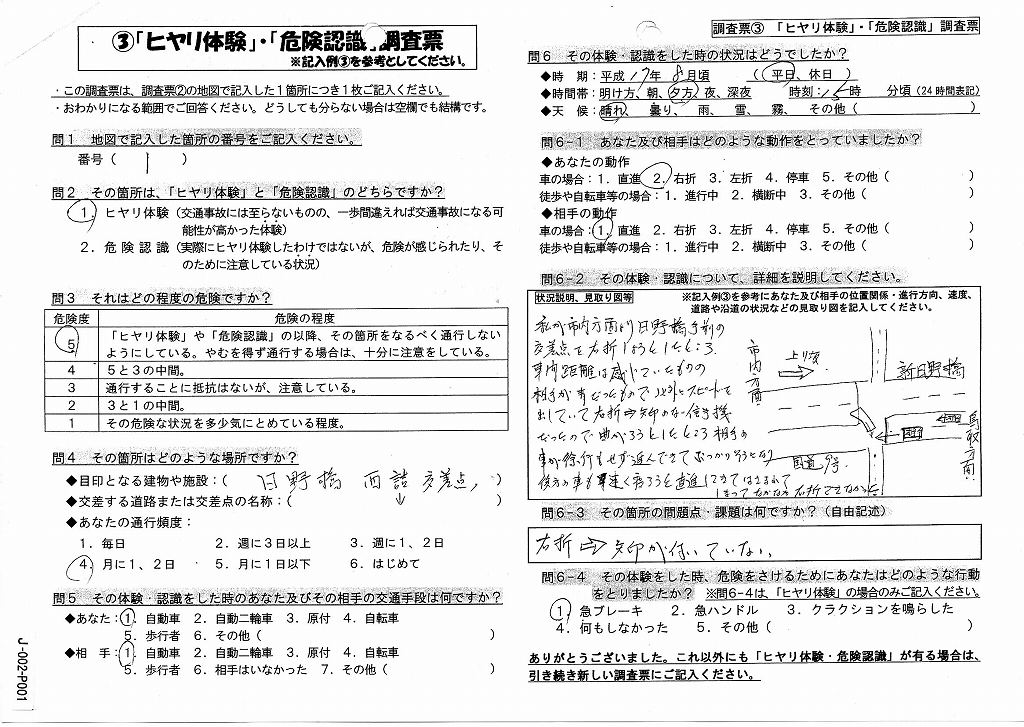 ③「ヒヤリ体験」・「危険認識」調査票
※記入例③を参考としてください。
・この調査票は、調査票②の地図で記入した1箇所につき1枚ご記入ください。
・おわかりになる範囲でご回答ください。どうしても分らない場合は空欄でも結構です。
問1 地図で記入した箇所の番号をご記入ください。
番号( 1 )
問2 その箇所は、「ヒヤリ体験」と「危険認識」のどちらですか?
1.ヒヤリ体験(交通事故には至らないものの、一歩間違えれば交通事故になる可
能性が高かった体験)
2.危険認識(実際にヒヤリ体験したわけではないが、危険が感じられたり、そ
のために注意している状況)
問3 それはどの程度の危険ですか?
危険度 危険の程度
5 「ヒヤリ体験」や「危険認識」の以降、その箇所をなるべく通行しない
ようにしている。やむを得ず通行する場合は、十分に注意をしている。
4 5と3の中間。
3 通行することに抵抗はないが、注意している。
2 3と1の中間。
1 その危険な状況を多少気にとめている程度。
問4 その箇所はどのような場所ですか?
◆目印となる建物や施設:( 日野橋 西詰 交差点 )
◆交差する道路または交差点の名称:( ↓ )
◆あなたの通行頻度:
1.毎日 2.週に3日以上 3.週に1、2日
4.月に1、2日 5.月に1日以下 6.はじめて
問5 その体験・認識をした時のあなた及びその相手の交通手段は何ですか?
◆あなた:1.自動車 2.自動二輪車 3.原付 4.自転車
5.歩行者 6.その他( )
◆相 手:1.自動車 2.自動二輪車 3.原付 4.自転車
5.歩行者 6.相手はいなかった 7.その他( )
J-002-P001
調査票③ 「ヒヤリ体験」・「危険認識」調査票
問6 その体験・認識をした時の状況はどうでしたか?
◆時 期:平成 17年 8月頃 ( 平日、休日 )
◆時間帯:明け方、朝、夕方、夜、深夜 時刻: 15時 分頃(24時間表記)
◆天 候:晴れ、曇り、雨、雪、霧、その他( )
問6-1 あなた及び相手はどのような動作をとっていましたか?
◆あなたの動作
車の場合:1.直進 2.右折 3.左折 4.停車 5.その他( )
徒歩や自転車等の場合:1.進行中 2.横断中 3.その他( )
◆相手の動作
車の場合:1.直進 2.右折 3.左折 4.停車 5.その他( )
徒歩や自転車等の場合:1.進行中 2.横断中 3.その他( )
問6-2 その体験・認識について、詳細を説明してください。
状況説明、見取り図等 ※記入例③を参考にあなた及び相手の位置関係・進行方向、速度、
道路や沿道の状況などの見取り図を記入してください。
私が市内方面より日野橋手前の
交差点を右折しようとしたところ
車間距離は感じていたものの
相手が車だったもので スピードを
出していて右折⇒矢印のない信号機
だったので曲がろうとしたところ相手の
車が徐行もせず進んできてぶつかりそうになり
後方の車も 直進して
なかなか右折できなかった
市内方面
上り坂
新日野橋
鳥取方面
国道9号
問6-3 その箇所の問題点・課題は何ですか?(自由記述)
右折⇒矢印が付いていない、
問6-4 その体験をした時、危険をさけるためにあなたはどのような行動
をとりましたか? ※問6-4は、「ヒヤリ体験」の場合のみご記入ください。
1.急ブレーキ 2.急ハンドル 3.クラクションを鳴らした
4.何もしなかった 5.その他( )
ありがとうございました。これ以外にも「ヒヤリ体験・危険認識」が有る場合は、
引き続き新しい調査票にご記入ください。